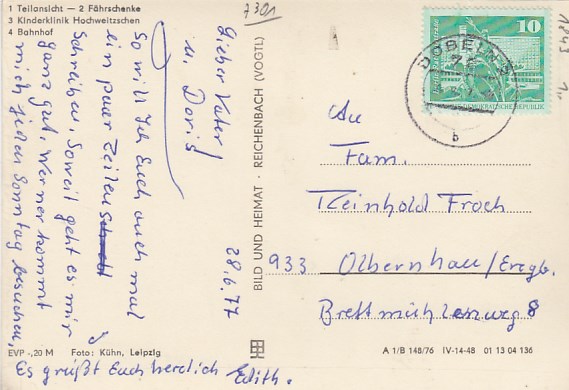 1 Teilansicht — 2 Fährschenke
3 Kinderklinik Hochweitzschen
4 Bahnhof
7301
28.6.77
Lieber Vater!
u. Doris
So will Ich Euch auch mal
ein paar Zeilen
Schreiben, Soweit geht es mir
ganz gut, Werner kommt
mich jeden Sonntag besuchen,
Es grüßt Euch herzlich Edith.
EVP -,20 M Foto: Kühn, Leipzig
BILD UND HEIMAT · REICHENBACH (VOGTL)
10
DEUTSCHE DEMOKRATISCHE REPUBLIK
DÖBELN
b
1843
An
Fam.
Reinhold Froch
933 Olbernhau/Erzgb.
Brettmühlenweg 8
A 1/B 148/76 IV-14-48 01 13 04 136